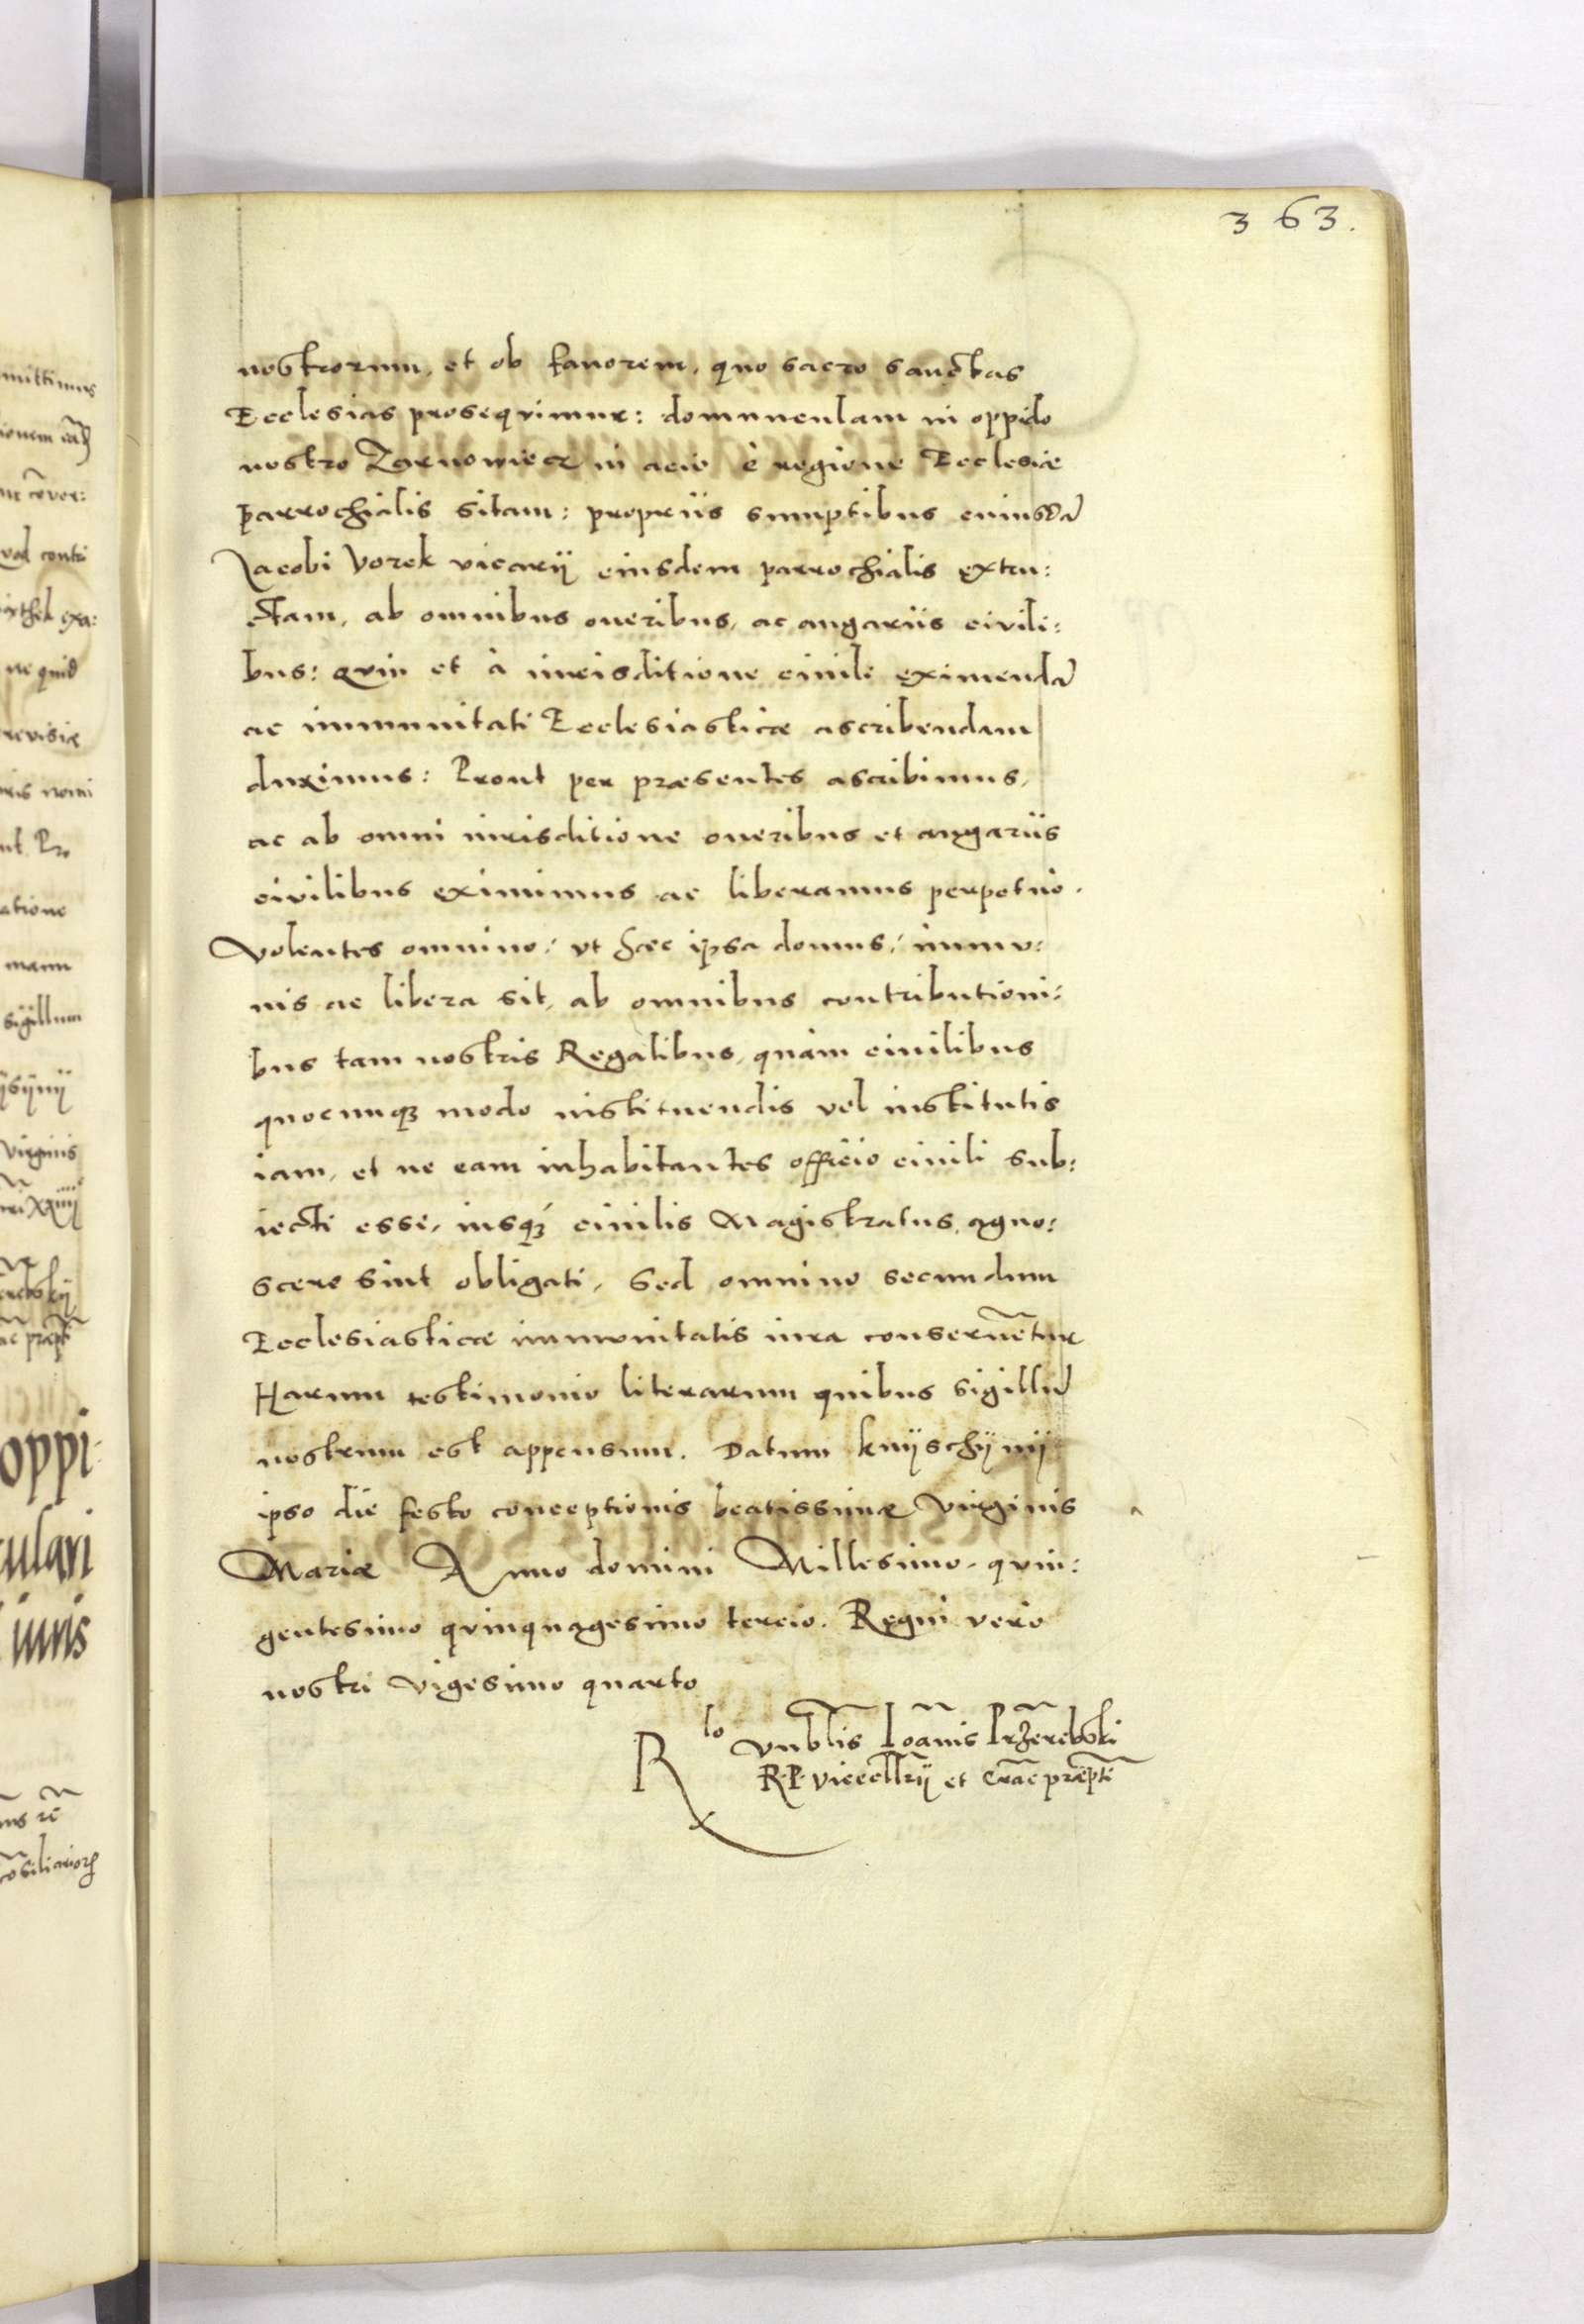 363.
nostrorum, et ob fauorem, quo sacro sanctas
Ecclesias prosequimur: domunculam in oppido
nostro Zarnowiecz in acie è regione Ecclesiæ
parrochialis sitam: propriis sumptibus cuiusdã
Iacobi Vorek vicarij eiusdem parrochialis extru:
ctam, ab omnibus oneribus, ac angariis civili:
bus: quin et à iurisditione ciuili eximendã
ac immunitati Ecclesiasticæ ascribendam
duximus: Prout per præsentes ascribimus,
ac ab omni iurisditione oneribus et angariis
civilibus eximimus ac liberamus perpetuò.
Volentes omnino: vt hæc ipsa domus, immu:
nis ac libera sit, ab omnibus contributioni:
bus tam nostris Regalibus, quàm ciuilibus
quocunqꝫ modo instituendis vel institutis
iam, et ne eam inhabitantes officio ciuili sub:
iecti esse, iusqꝫ́ ciuilis Magistratus agno:
scere sint obligati, Sed omnino secundum
Ecclesiasticæ immunitatis iura conseruẽtur
Harum testimonio literarum quibus sigillũ
nostrum est appensum. Datum knÿschÿnij
ipso die festo conceptionis beatissimæ Virginis
Mariæ Anno domini Millesimo quin:
gentesimo quinquagesimo tercio. Regni verò
nostri vigesimo quarto
Rlo Vnblis Ioãnis Przerebski
R. P. vicecllrij et Crac præpti